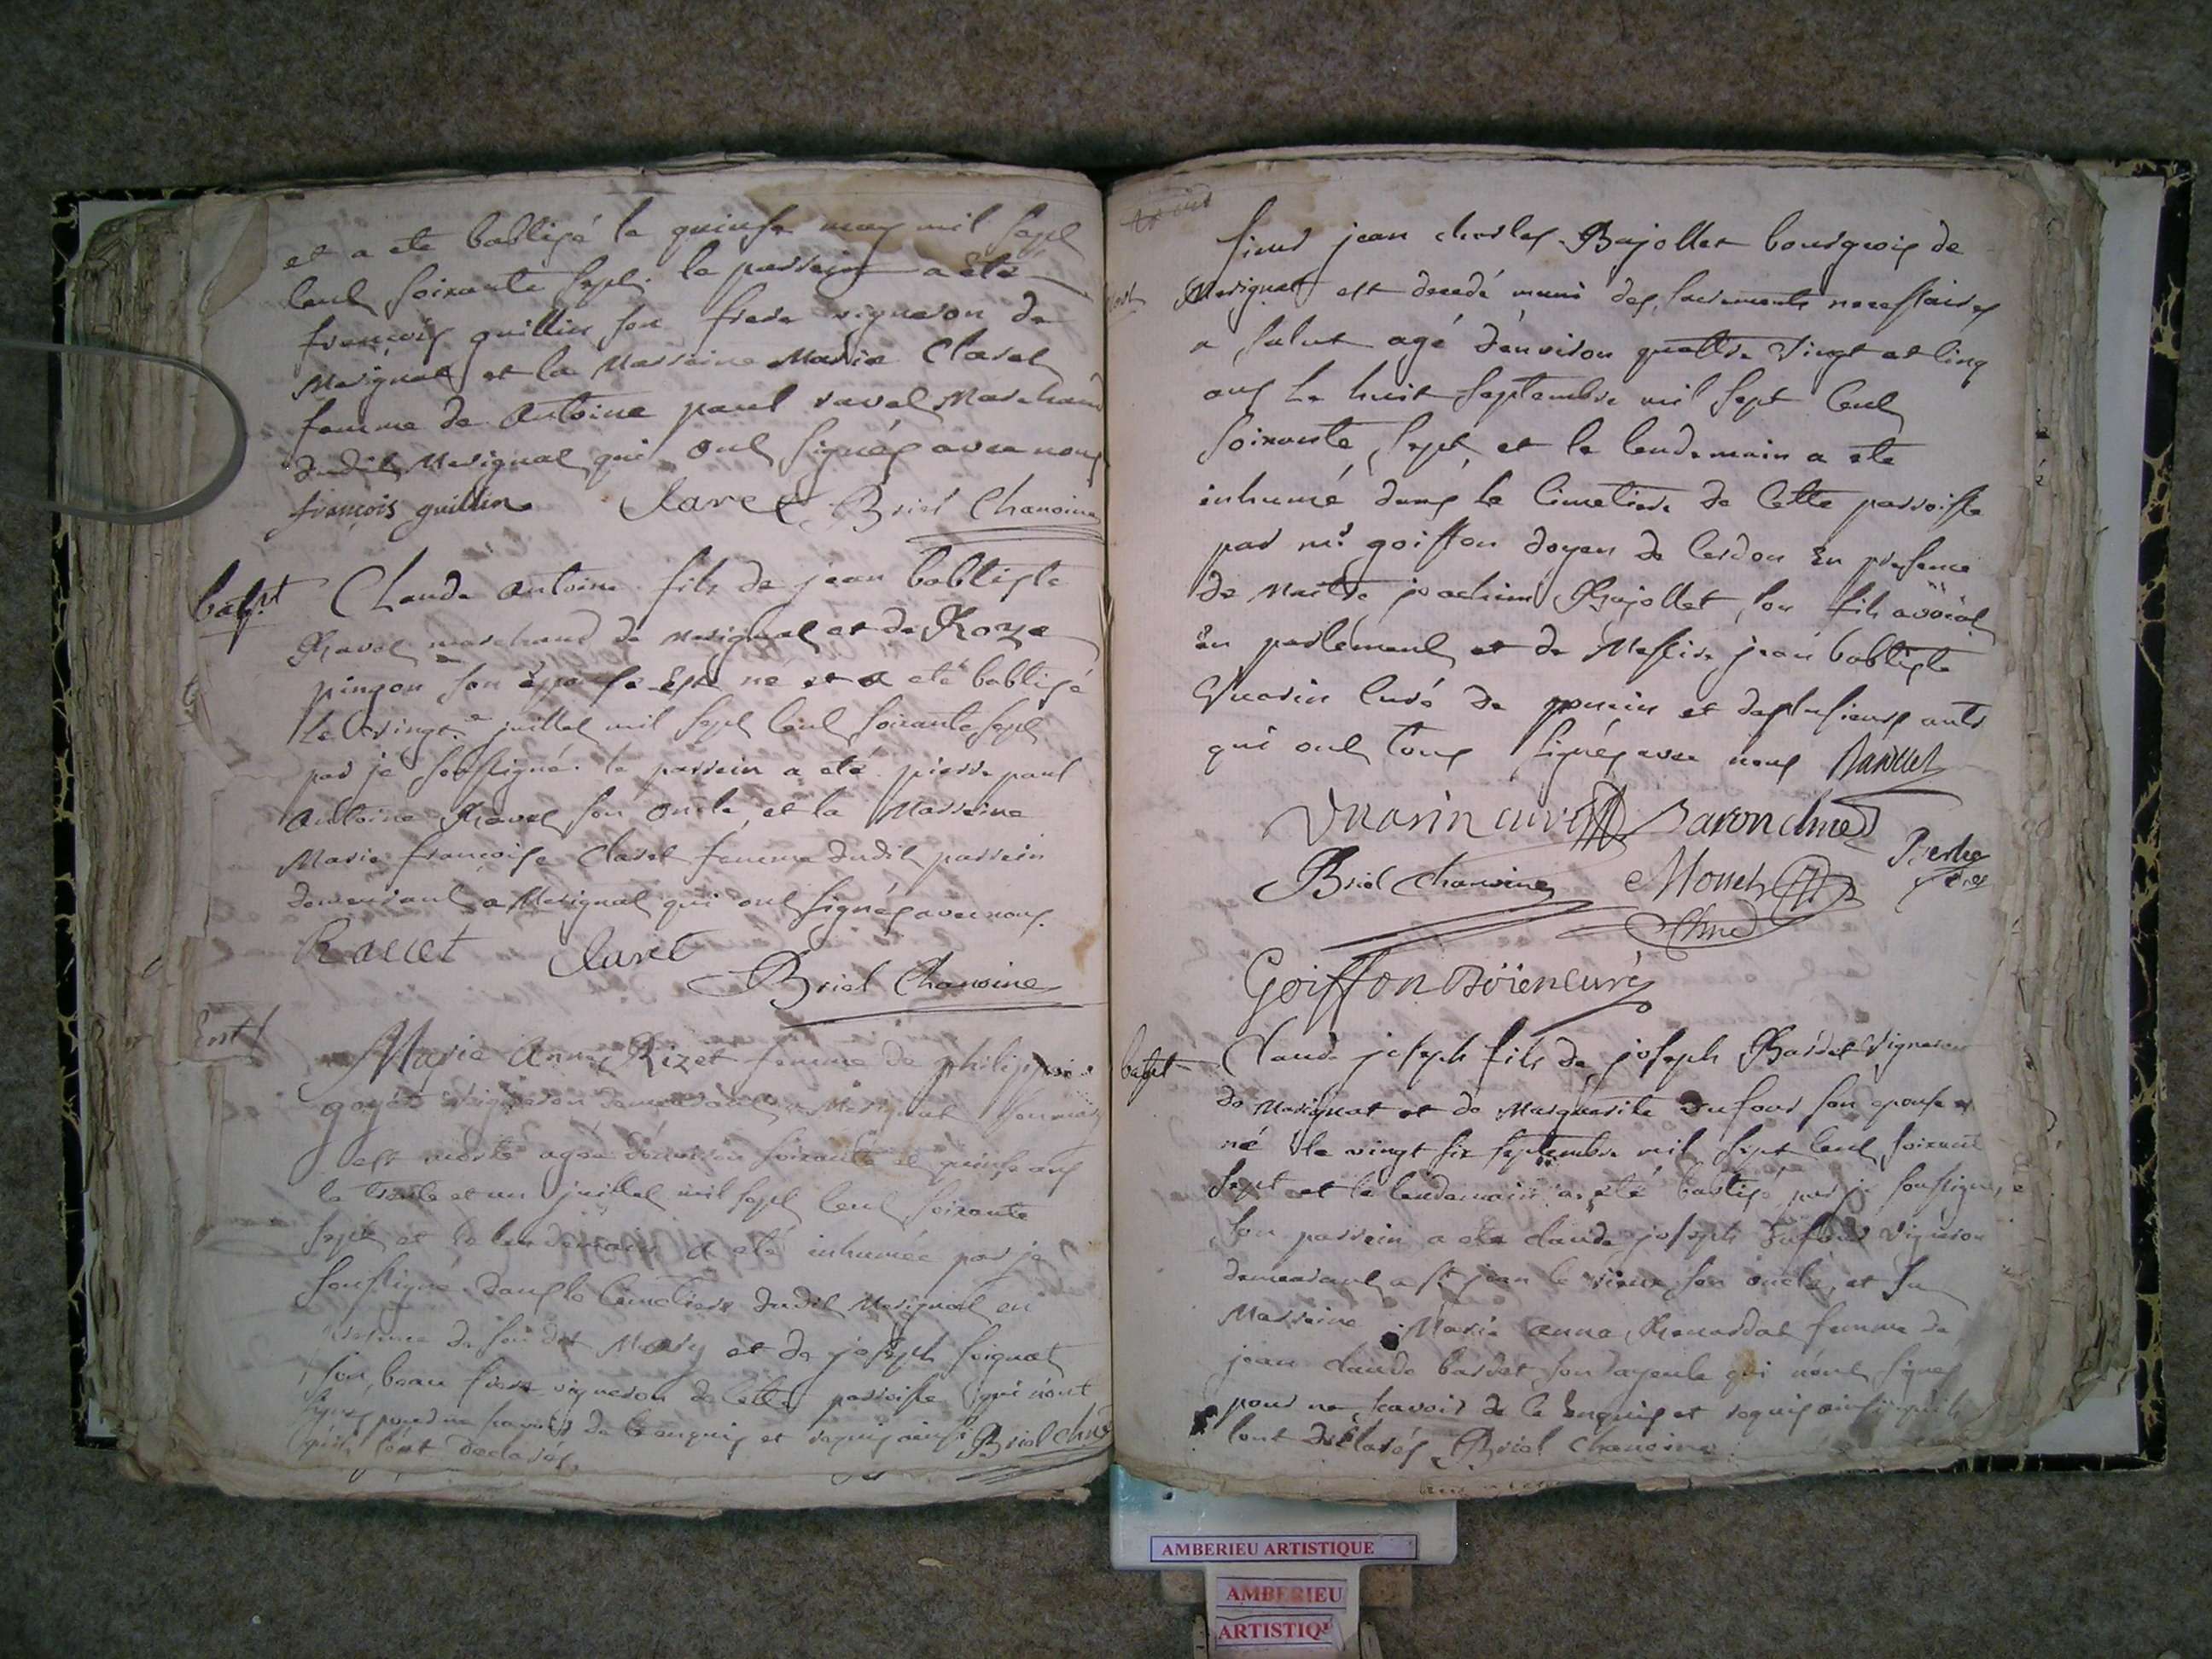 et a ete babtisé le quinse may mil sept
cent soixante sept. le parrein a été
francois guillin son frere vigneron de
Merignat et la Marraine Marie Claret
femme de Antoine paul ravel Marchand
dudit Merignat qui ont signés avec nous
francois guillin Claret Briel Chanoine
bapt Claude Antoine fils de jean babtiste
Ravel marchand de merignat et de Roze
pingon son épouse est né et a eté babtisé
Le vingt juillet mil sept cent soixante sept
par je soussigné. le parrein a eté pierre paul
Antoine Ravel son oncle et la Marraine
Marie françoise Claret femme dudit parrein
demeurant a Merignat qui ont signés avec nous.
Ravet Claret
Briel Chanoine
Ent
Marie Anne Rizet femme de philippe
goyet vigneron demeurant a Merignat
est morte agée d'environ soixante et quinse ans
le trente et un juillet mil sept cent soixante
sept et le lendemain a eté inhumée par je
soussigné dans le Cimetiere dudit Merignat en
presence de son dit Mary et de joseph soignet
son beau frere vigneron de cette parroisse qui n'ont
signes pour ne scavoir de ce enquis et requis ainsi Briel chne
qu'ils l'ont declarés.
sieur jean charles Bajollet bourgeois de
Merignat est decedé muni des sacrements necessaires
a salut agé d'environ quattre vingt et cinq
ans Le huit septembre mil sept Cent
soixante sept et le lendemain a ete
inhumé dans le Cimetiere de Cette parroisse
par mr goiffon doyen de Cerdon En presence
de Maitre joachim Bajollet son fils avocat
En parlement et de Messire jean babtiste
Vuarin curé de poncin et de plusieurs autr
qui ont tous signés avec nous
Vuarin curé Baron chne
Briel Chanoine Monet
Chne
Goiffon Doïen curé
babpt Claude joseph fils de joseph Bardet Vigneron
de Merignat et de Marguerite dufour son epouse est
né le vingt six septembre mil sept cent soixante
sept et le lendemain a eté babtisé par je soussigné
son parrein a ete claude joseph Dufour Vigneron
demeurant a st jean le vieux son oncle, et sa
Marraine Marie anne Renardat femme de
jean claude bardet son ayeule qui n'ont signes
pour ne scavoir de ce Enquis et requis ainsi qu'ils
l'ont declarés Briel Chanoine
AMBERIEU ARTISTIQUE
AMBERIEU
ARTISTIQU